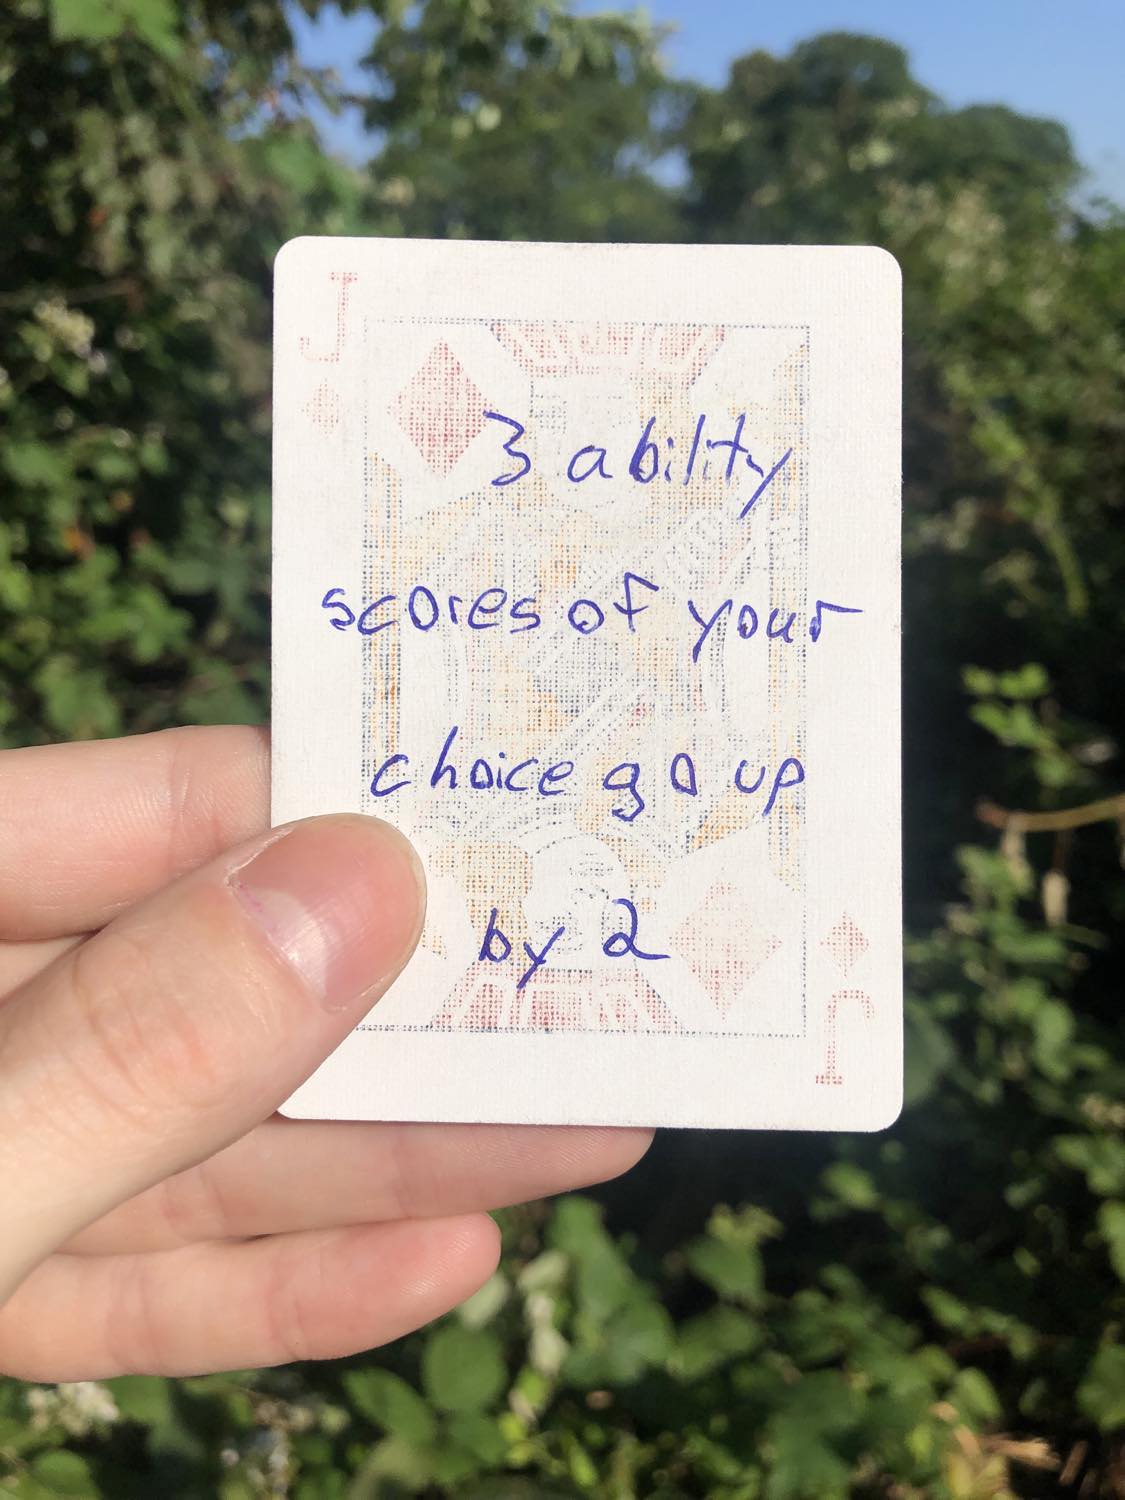 J
3 ability
scores of your
choice go up
by 2
J